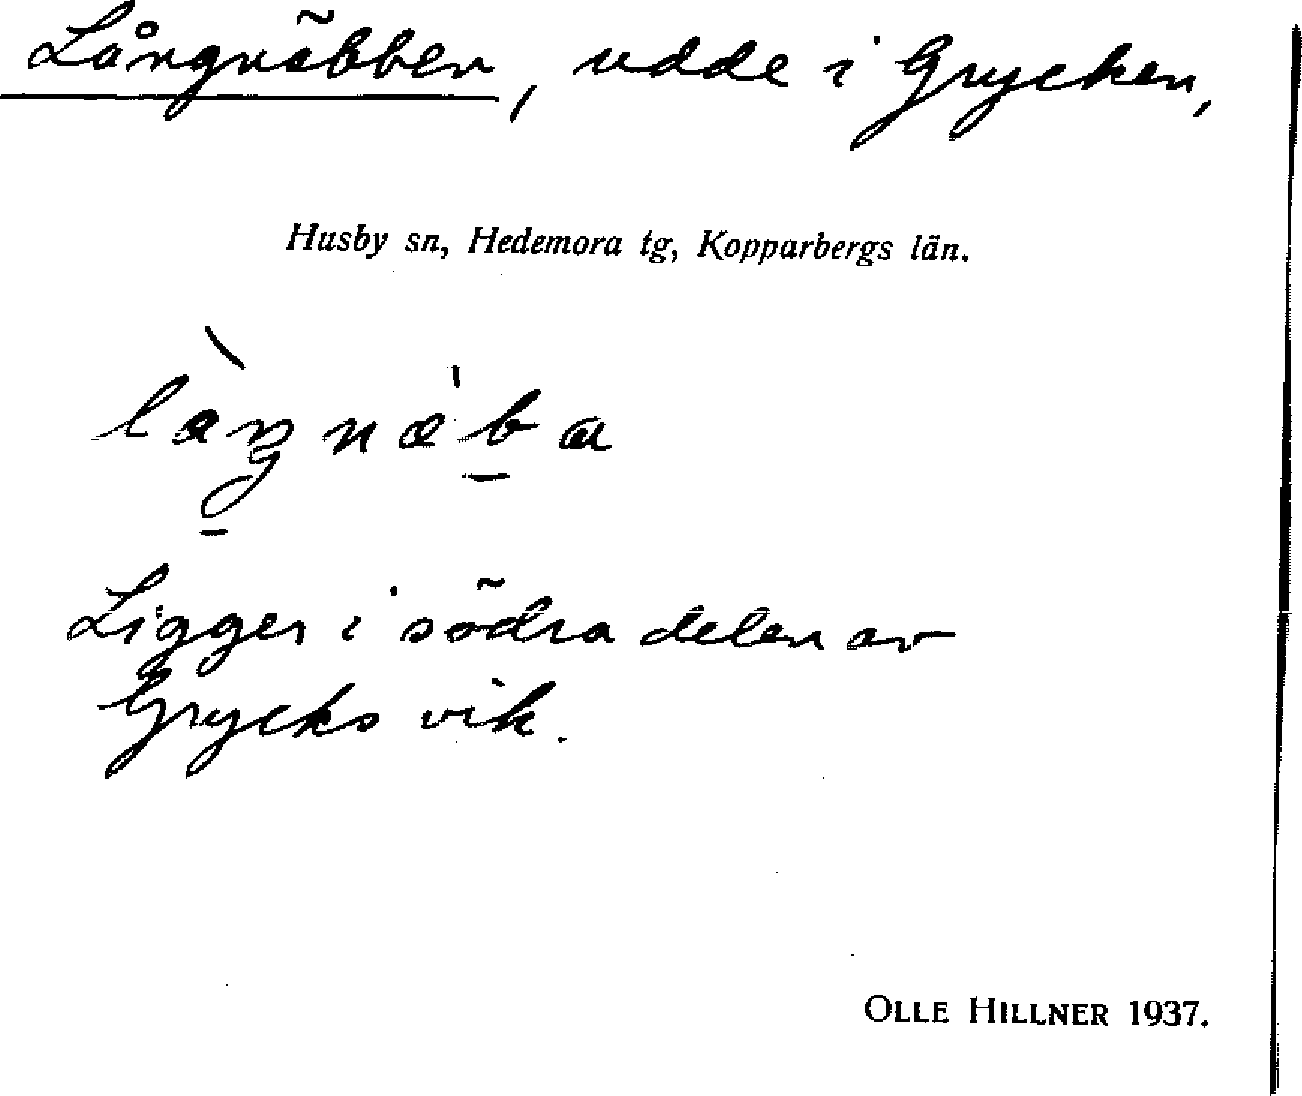 Långnäbben, udde i Grycken,
Husby sn, Hedemora tg, Kopparbergs län.
Ligger i södra delen av
Grycks vik.
OLLE HILLNER 1937.